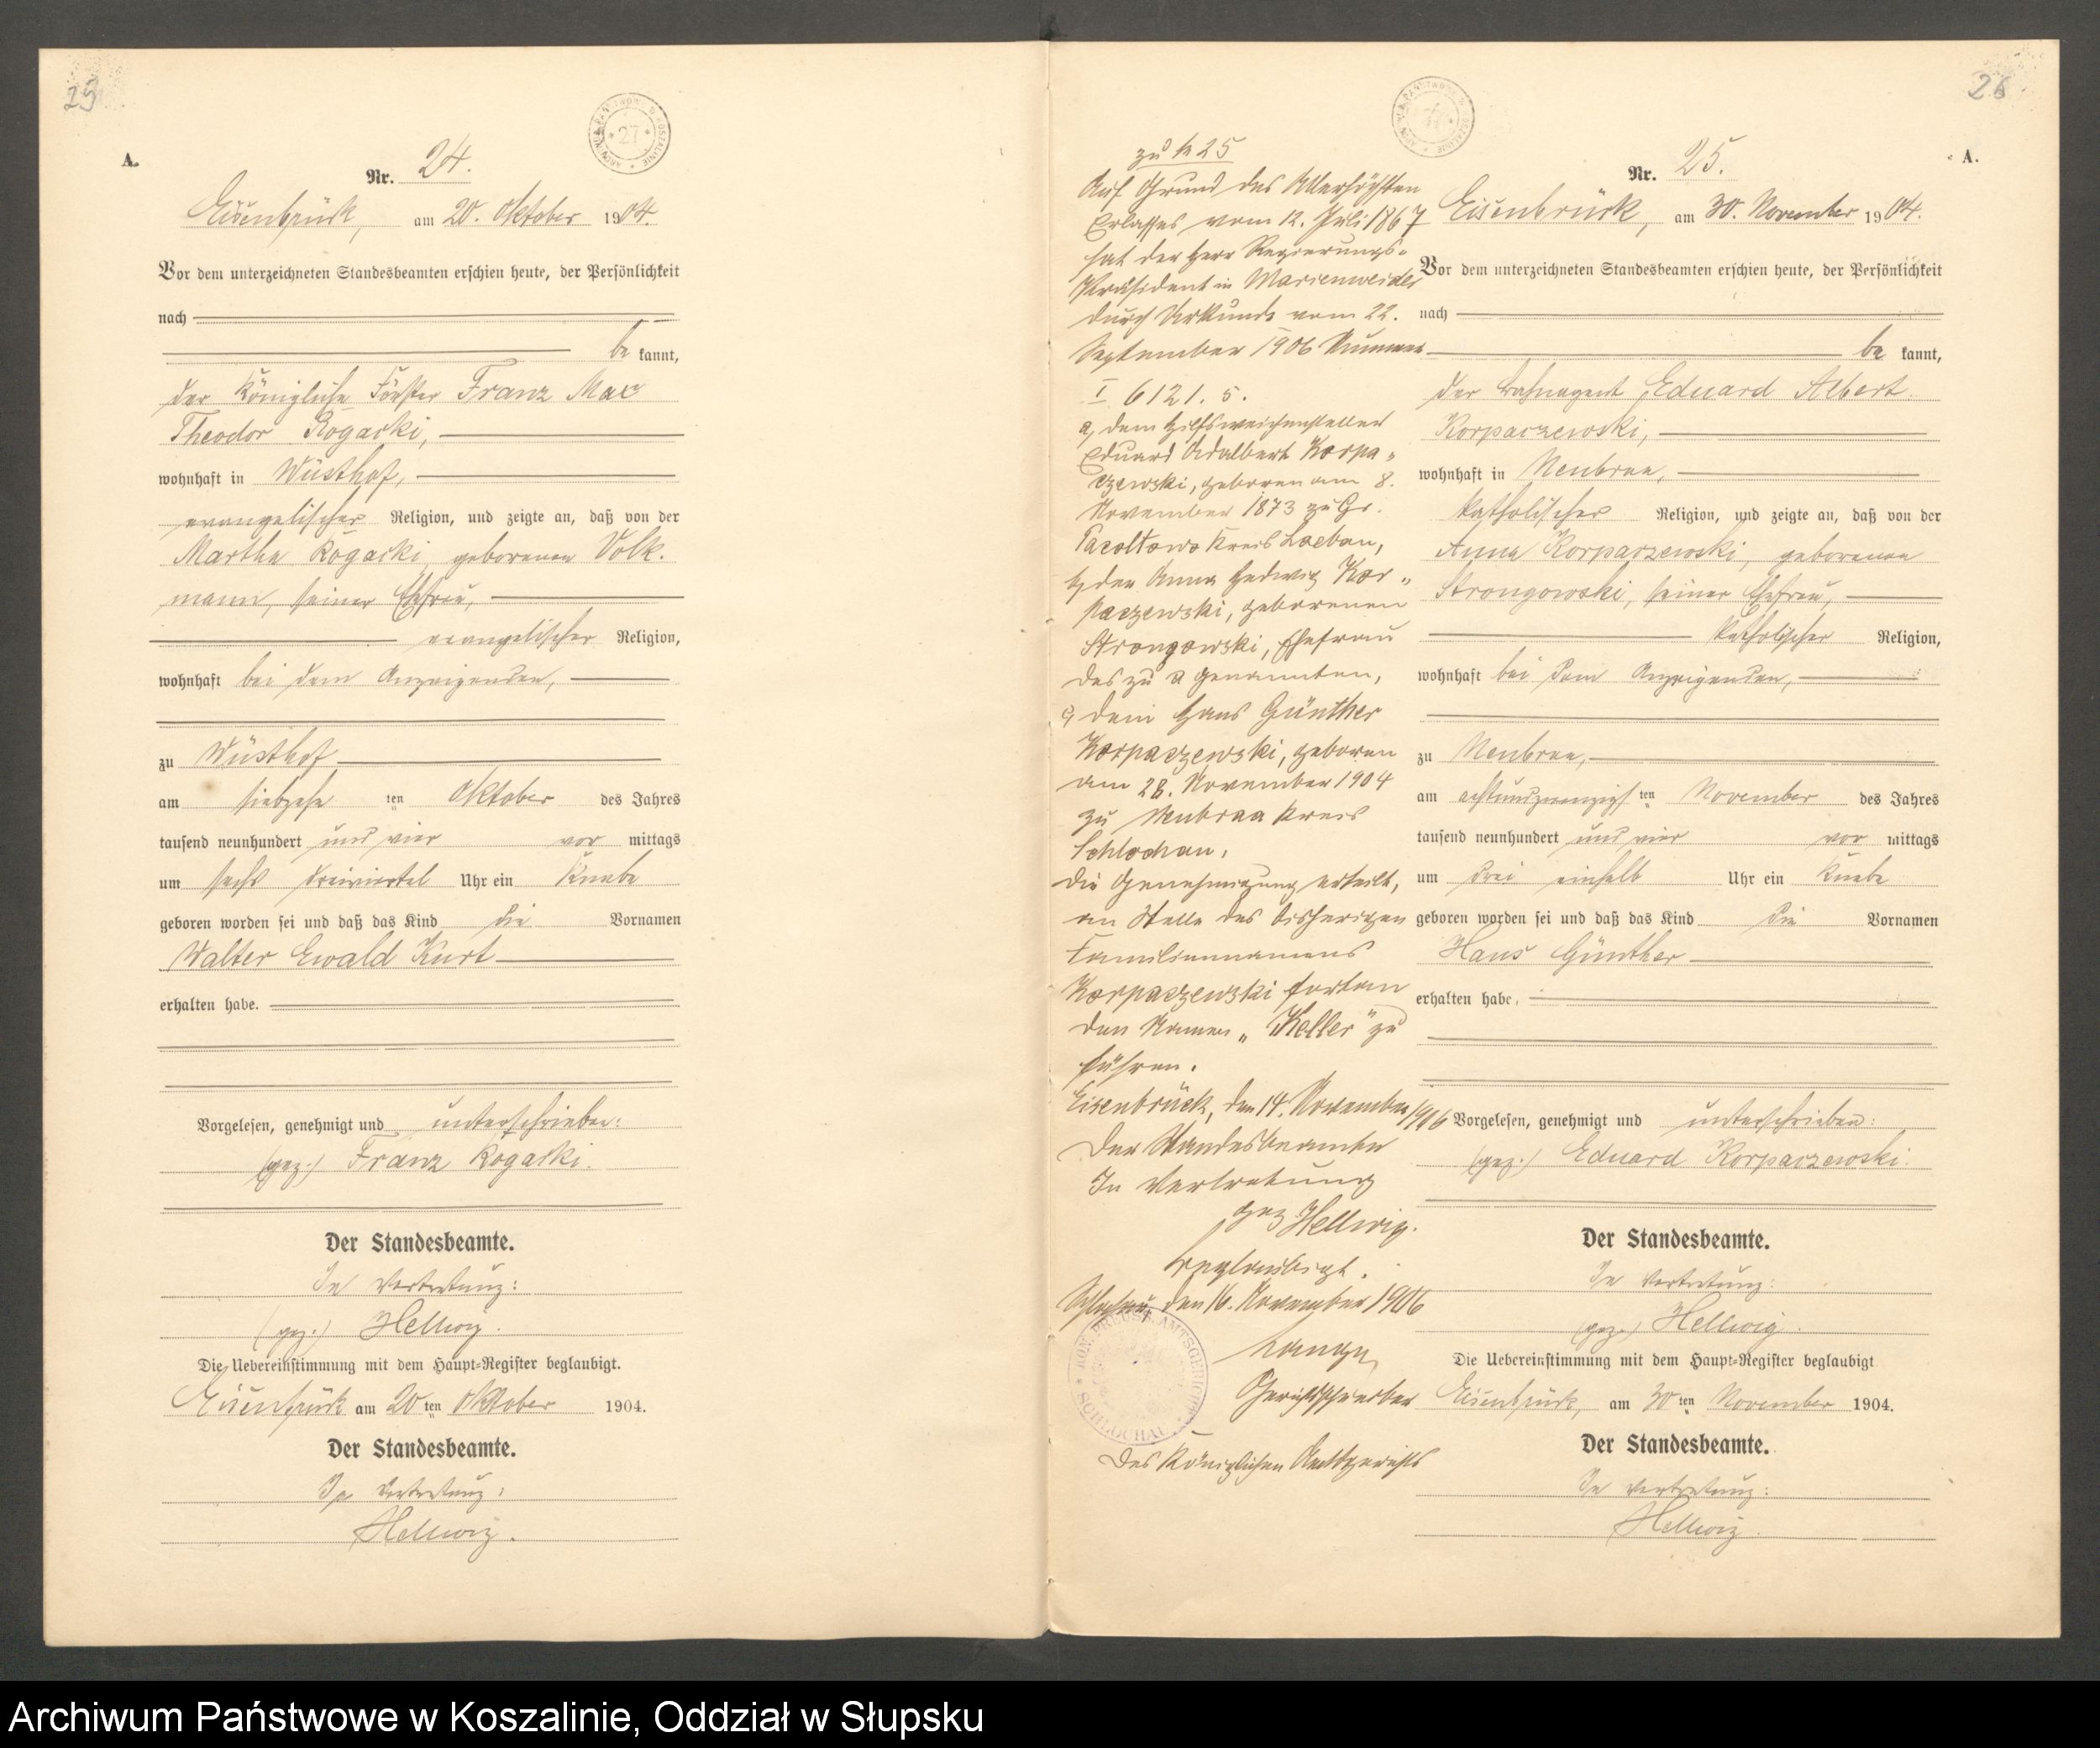 25
A.
Nr. 24.
Eisenbrück, am 20. Oktober 1904.
Vor dem unterzeichneten Standesbeamten erschien heute, der Persönlichkeit
nach
be kannt,
der Königliche Förster Franz Max
Theodor Rogacki,
wohnhaft in Wüsthof,
evangelischer Religion, und zeigte an, daß von der
Martha Rogacki geborenen Volk.
mann, seiner Ehefrau,
evangelischer Religion,
wohnhaft bei dem Anzeigenden,
zu Wüsthof
am siebzehn ten Oktober des Jahres
tausend neunhundert und vier vor mittags
um sechs dreiviertel Uhr ein Knabe
geboren worden sei und daß das Kind die Vornamen
Walter Ewald Kurt
erhalten habe.
Vorgelesen, genehmigt und unterschrieben:
(gez.) Franz Rogacki.
Der Standesbeamte.
In Vertretung:
(gez.) Hellwig.
Die Uebereinstimmung mit dem Haupt-Register beglaubigt.
Eisenbrück am 20 ten Oktober 1904.
Der Standesbeamte.
In Vertretung:
Hellwig.
26
zu № 25
Auf Grund des Allerhöchsten
Erlasses vom 12. Juli 1867
hat der Herr Regierungs-
Präsident in Marienwerder
durch Urkunde vom 22.
September 1906 Nummer
I 6121. 5.
a, dem Hilfsweichensteller
Eduard Adalbert Korpa-
czewski, geboren am 8.
November 1873 zu Gr.
Pacoltowo Kreis Loebau,
b, der Anna Hedwig Kor-
paczewski, geborenen
Strongowski, Ehefrau
des zu a genannten,
c, dem Hans Günther
Korpaczewski, geboren
am 28. November 1904
zu Neubraa Kreis
Schlochau,
die Genehmigung erteilt,
an Stelle des bisherigen
Familiennamens
Korpaczewski fortan
den Namen „Keller" zu
führen.
Eisenbrück, den 14. November 1906
Der Standesbeamte
In Vertretung
gez Hellwig.
Beglaubigt.
Schlochau, den 16. November 1906
Lange
Gerichtsschreiber
des Königlichen Amtsgerichts
KÖN. PREUSS. AMTSGERICHT
SCHLOCHAU
A.
Nr. 25.
Eisenbrück, am 30. November 1904.
Vor dem unterzeichneten Standesbeamten erschien heute, der Persönlichkeit
nach
be kannt,
der Bahnagent Eduard Albert
Korpaczewski,
wohnhaft in Neubraa,
katholischer Religion, und zeigte an, daß von der
Anna Korpaczewski, geborenen
Strongowski, seiner Ehefrau,
katholischer Religion,
wohnhaft bei dem Anzeigenden,
zu Neubraa,
am achtundzwanzigs ten November des Jahres
tausend neunhundert und vier vor mittags
um drei einhalb Uhr ein Knabe
geboren worden sei und daß das Kind die Vornamen
Hans Günther
erhalten habe.
Vorgelesen, genehmigt und unterschrieben:
(gez.) Eduard Korpaczewski.
Der Standesbeamte.
In Vertretung:
(gez.) Hellwig.
Die Uebereinstimmung mit dem Haupt-Register beglaubigt
Eisenbrück, am 30 ten November 1904.
Der Standesbeamte.
In Vertretung:
Hellwig.
Archiwum Państwowe w Koszalinie, Oddział w Słupsku